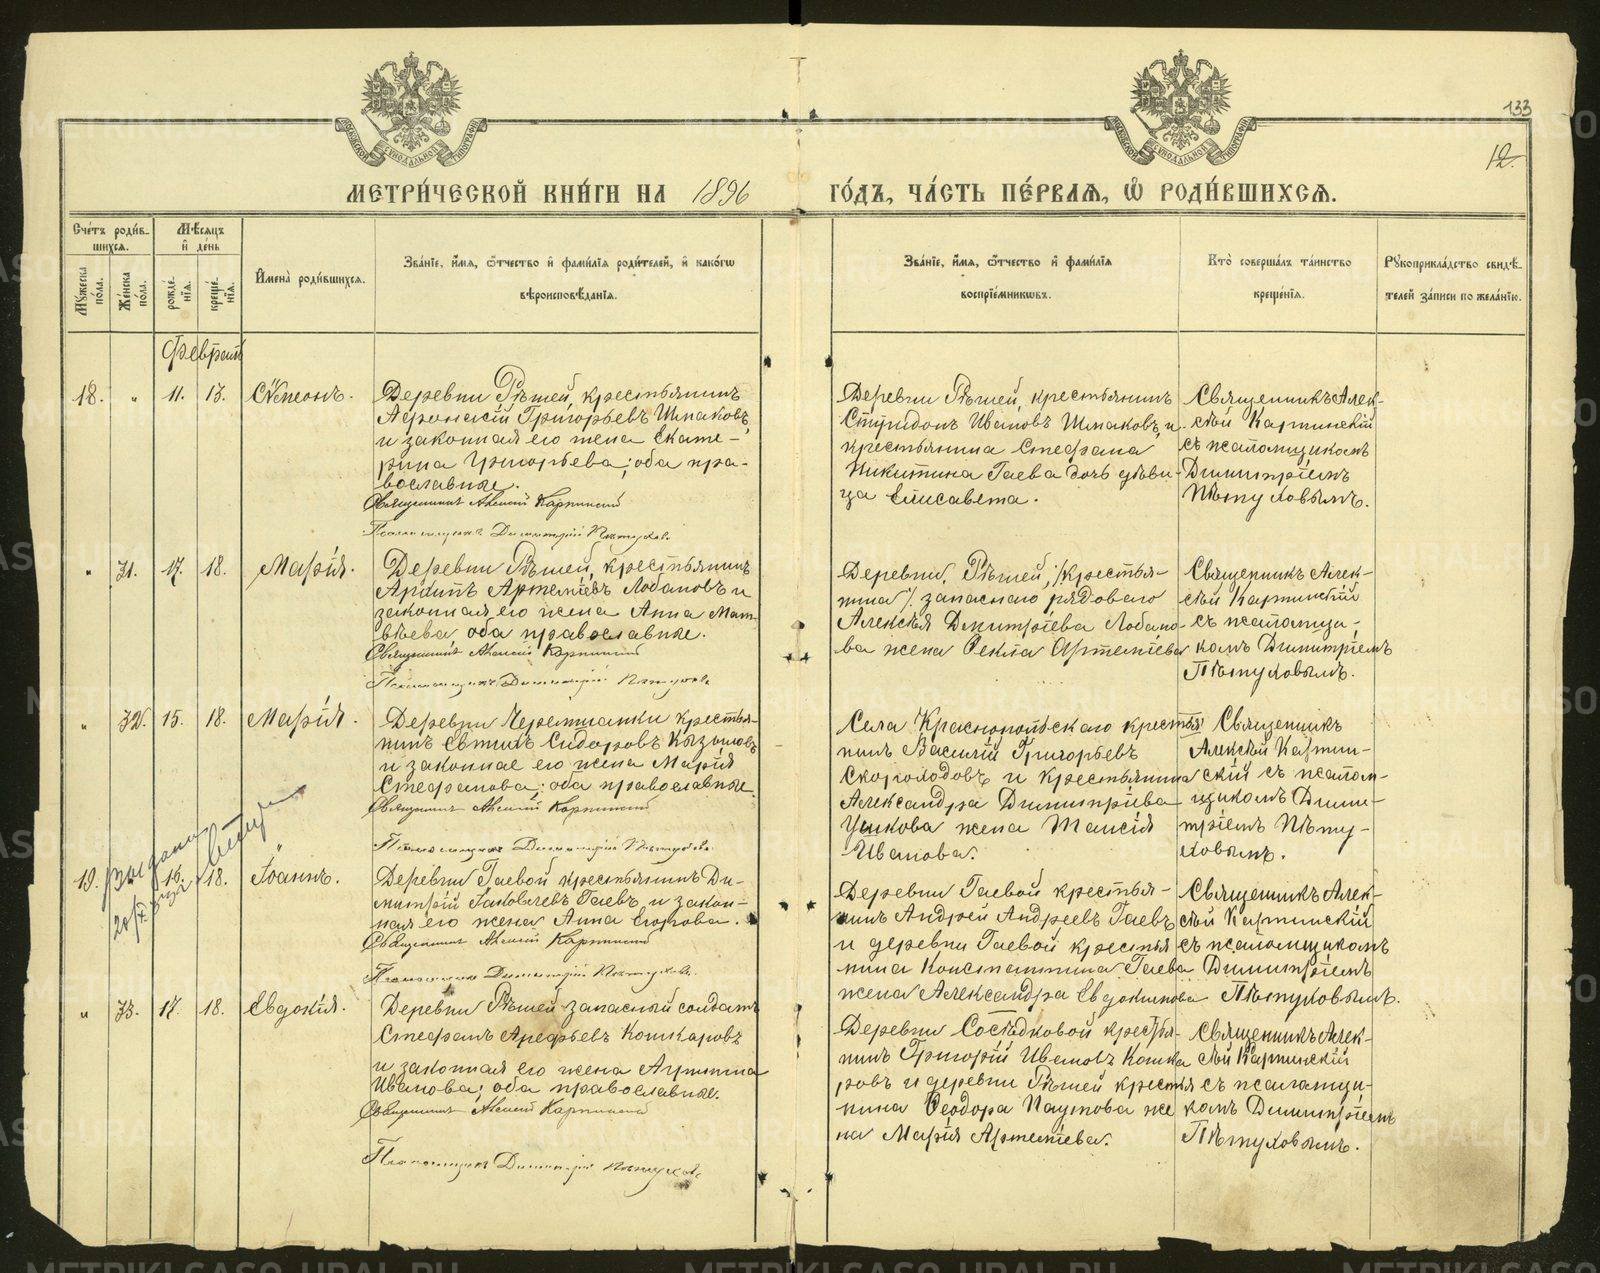 133
12.
МЕТРИ́ЧЕСКОЙ КНИ́ГИ НА 1896 ГО́ДЪ, ЧА́СТЬ ПЕ́РВАѦ, Ѡ҆ РОДИ́ВШИХСѦ.
Сче́тъ роди́в-
шихсѧ.
Мѣ́сѧцъ
и҆ де́нь
Имена̀ роди́вшихсѧ.
Зва́нїе, и҆́мѧ, ѻ҆́тчество и҆ фами́лїѧ роди́телей, и҆ како́гѡ
вѣроисповѣ́данїѧ.
Зва́нїе, и҆́мѧ, ѻ҆́тчество и҆ фами́лїѧ
воспрїе́мникѡвъ.
Кто̀ соверша́лъ та́инство
креще́нїѧ.
Рꙋкоприкла́дство свидѣ́-
телей за́писи по жела́нїю.
Мꙋ́жеска
по́ла.
Же́нска
по́ла.
рожде́-
нїѧ.
креще́-
нїѧ.
Февраль
18. " 11. 13. Сѵмеонъ.
Деревни Рѣшей, крестьянинъ
Аѳонасій Григорьевъ Шмаковъ,
и законная его жена Екате-
рина Григорьева; оба пра-
вославные.
Священникъ Алексій Карпинскій
Псаломщикъ Димитрій Пѣтуховъ.
Деревни Рѣшей, крестьянинъ
Спѵридонъ Ивановъ Шмаковъ, и
крестьянина Стефана
Никитина Гаева дочь дѣви-
ца Елисавета.
Священникъ Алек-
сѣй Карпинскій
съ псаломщикомъ
Димитріемъ
Пѣтуховымъ.
" 31. 17. 18. Марія.
Деревни Рѣшей, крестьянинъ
Архипъ Артеміевъ Лобановъ и
законная его жена Анна Мат-
вѣева, оба православные.
Священникъ Алексій Карпинскій
Псаломщикъ Димитрій Пѣтуховъ
Деревни, Рѣшей, /крестья-
нина/, запаснаго рядоваго
Алексѣя Дмитріева Лобано-
ва жена Ѳекла Артеміева
Священникъ Алек-
сѣй Карпинскій
съ псаломщи-
комъ Димитріемъ
Пѣтуховымъ.
" 32. 15. 18. Марія.
Деревни Черемшанки крестья-
нинъ Сидоровъ
и законная его жена Марія
Стефанова; оба православные.
Священникъ Алексій Карпинскій
Псаломщикъ Димитрій Пѣтуховъ.
Села Краснопольскаго крестья
нинъ Василій Григорьевъ
Скороходовъ и крестьянина
Александра Димитріева
Ушкова жена Таисія
Иванова.
Священникъ
Алексѣй Карпин-
скій съ псалом-
щикомъ Дими-
тріемъ Пѣту-
ховымъ.
19. 16. 18. Іоаннъ.
Деревни Гаевой крестьянинъ Ди-
митрій Іаковлевъ Гаевъ, и закон-
ная его жена Анна Егорова.
Священникъ Алексій Карпинскій
Псаломщикъ Димитрій Пѣтуховъ.
Деревни Гаевой крестья-
нинъ Андрей Андреевъ Гаевъ
и деревни Гаевой крестья
нина Константина Гаева
жена Александра Евдокимова
Священникъ Алек-
сѣй Карпинскій
съ псаломщикомъ
Димитріемъ
Пѣтуховымъ.
" 33. 17. 18. Евдокія.
Деревни Рѣшей запасный солдатъ
Стефанъ Арефьевъ Кошкаровъ
и законная его жена
Иванова; оба православные.
Священникъ Алексій Карпинскій
Псаломщикъ Димитрій Пѣтуховъ
Деревни Сосѣдковой крестья-
нинъ Григорій Ивановъ Кошка
ровъ и деревни Рѣшей крестья
нина Ѳеодора Паутова же
на Марія Артеміева.
Священникъ Алек-
сѣй Карпинскій
съ псаломщи-
комъ Димитріемъ
Пѣтуховымъ.